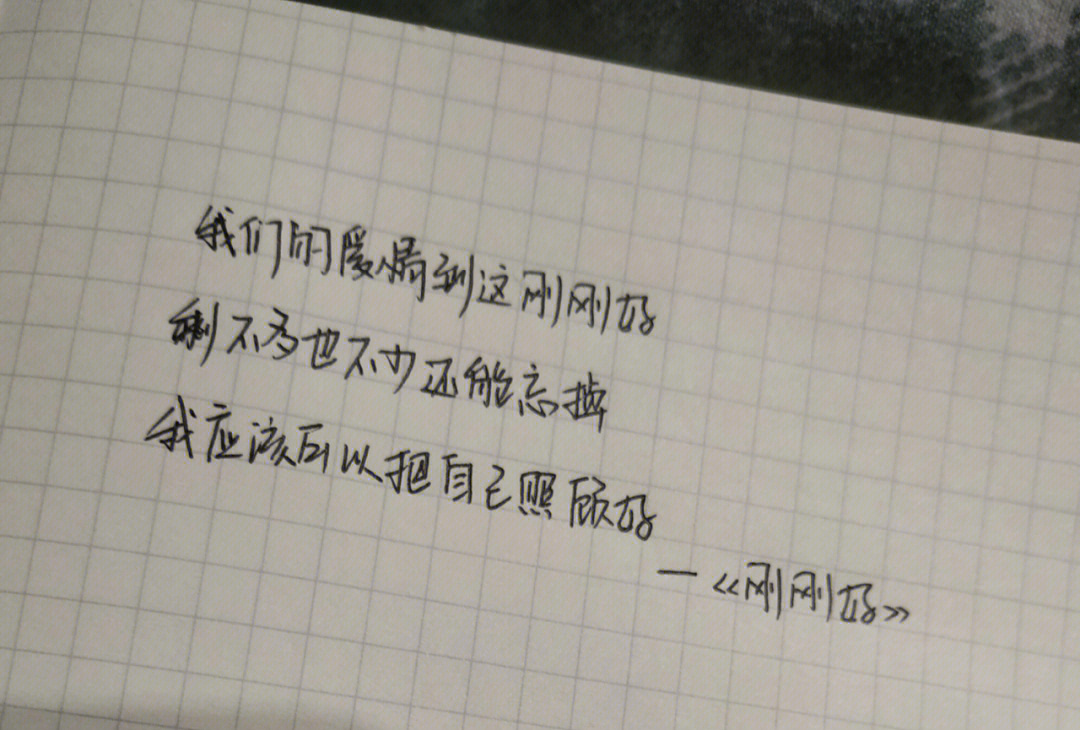 我们的爱情到这刚刚好
剩不多也不少还能忘掉
我应该可以把自己照顾好
—《刚刚好》